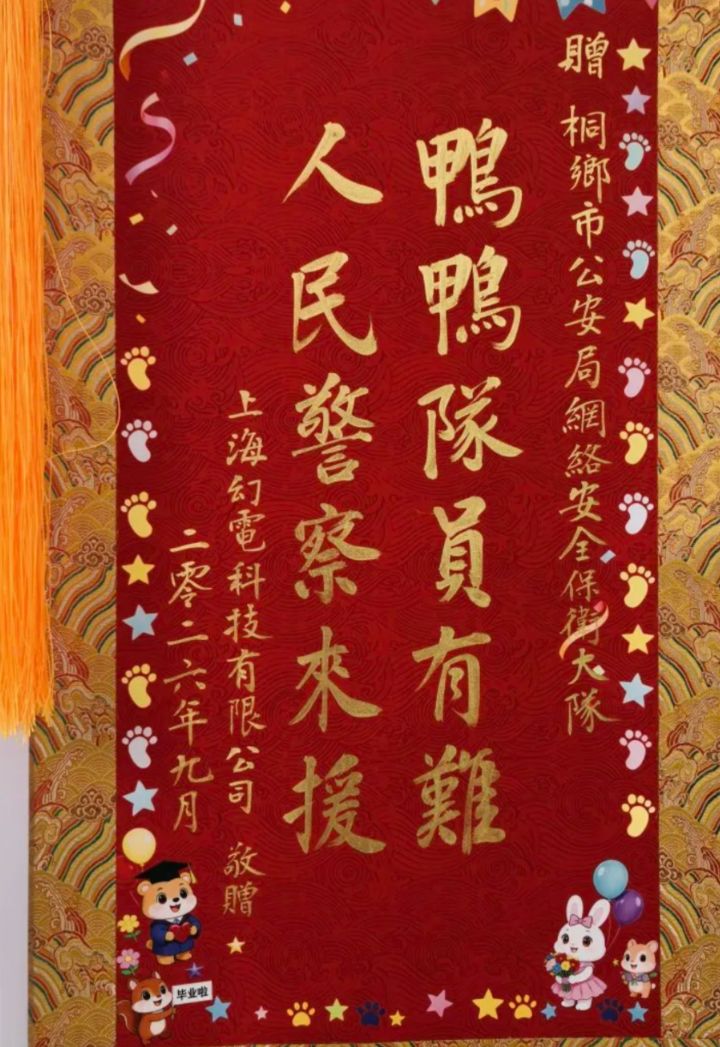 贈 桐鄉市公安局網絡安全保衛大隊
鴨鴨隊員有難
人民警察來援
上海幻電科技有限公司 敬贈
二零二六年九月
毕业啦